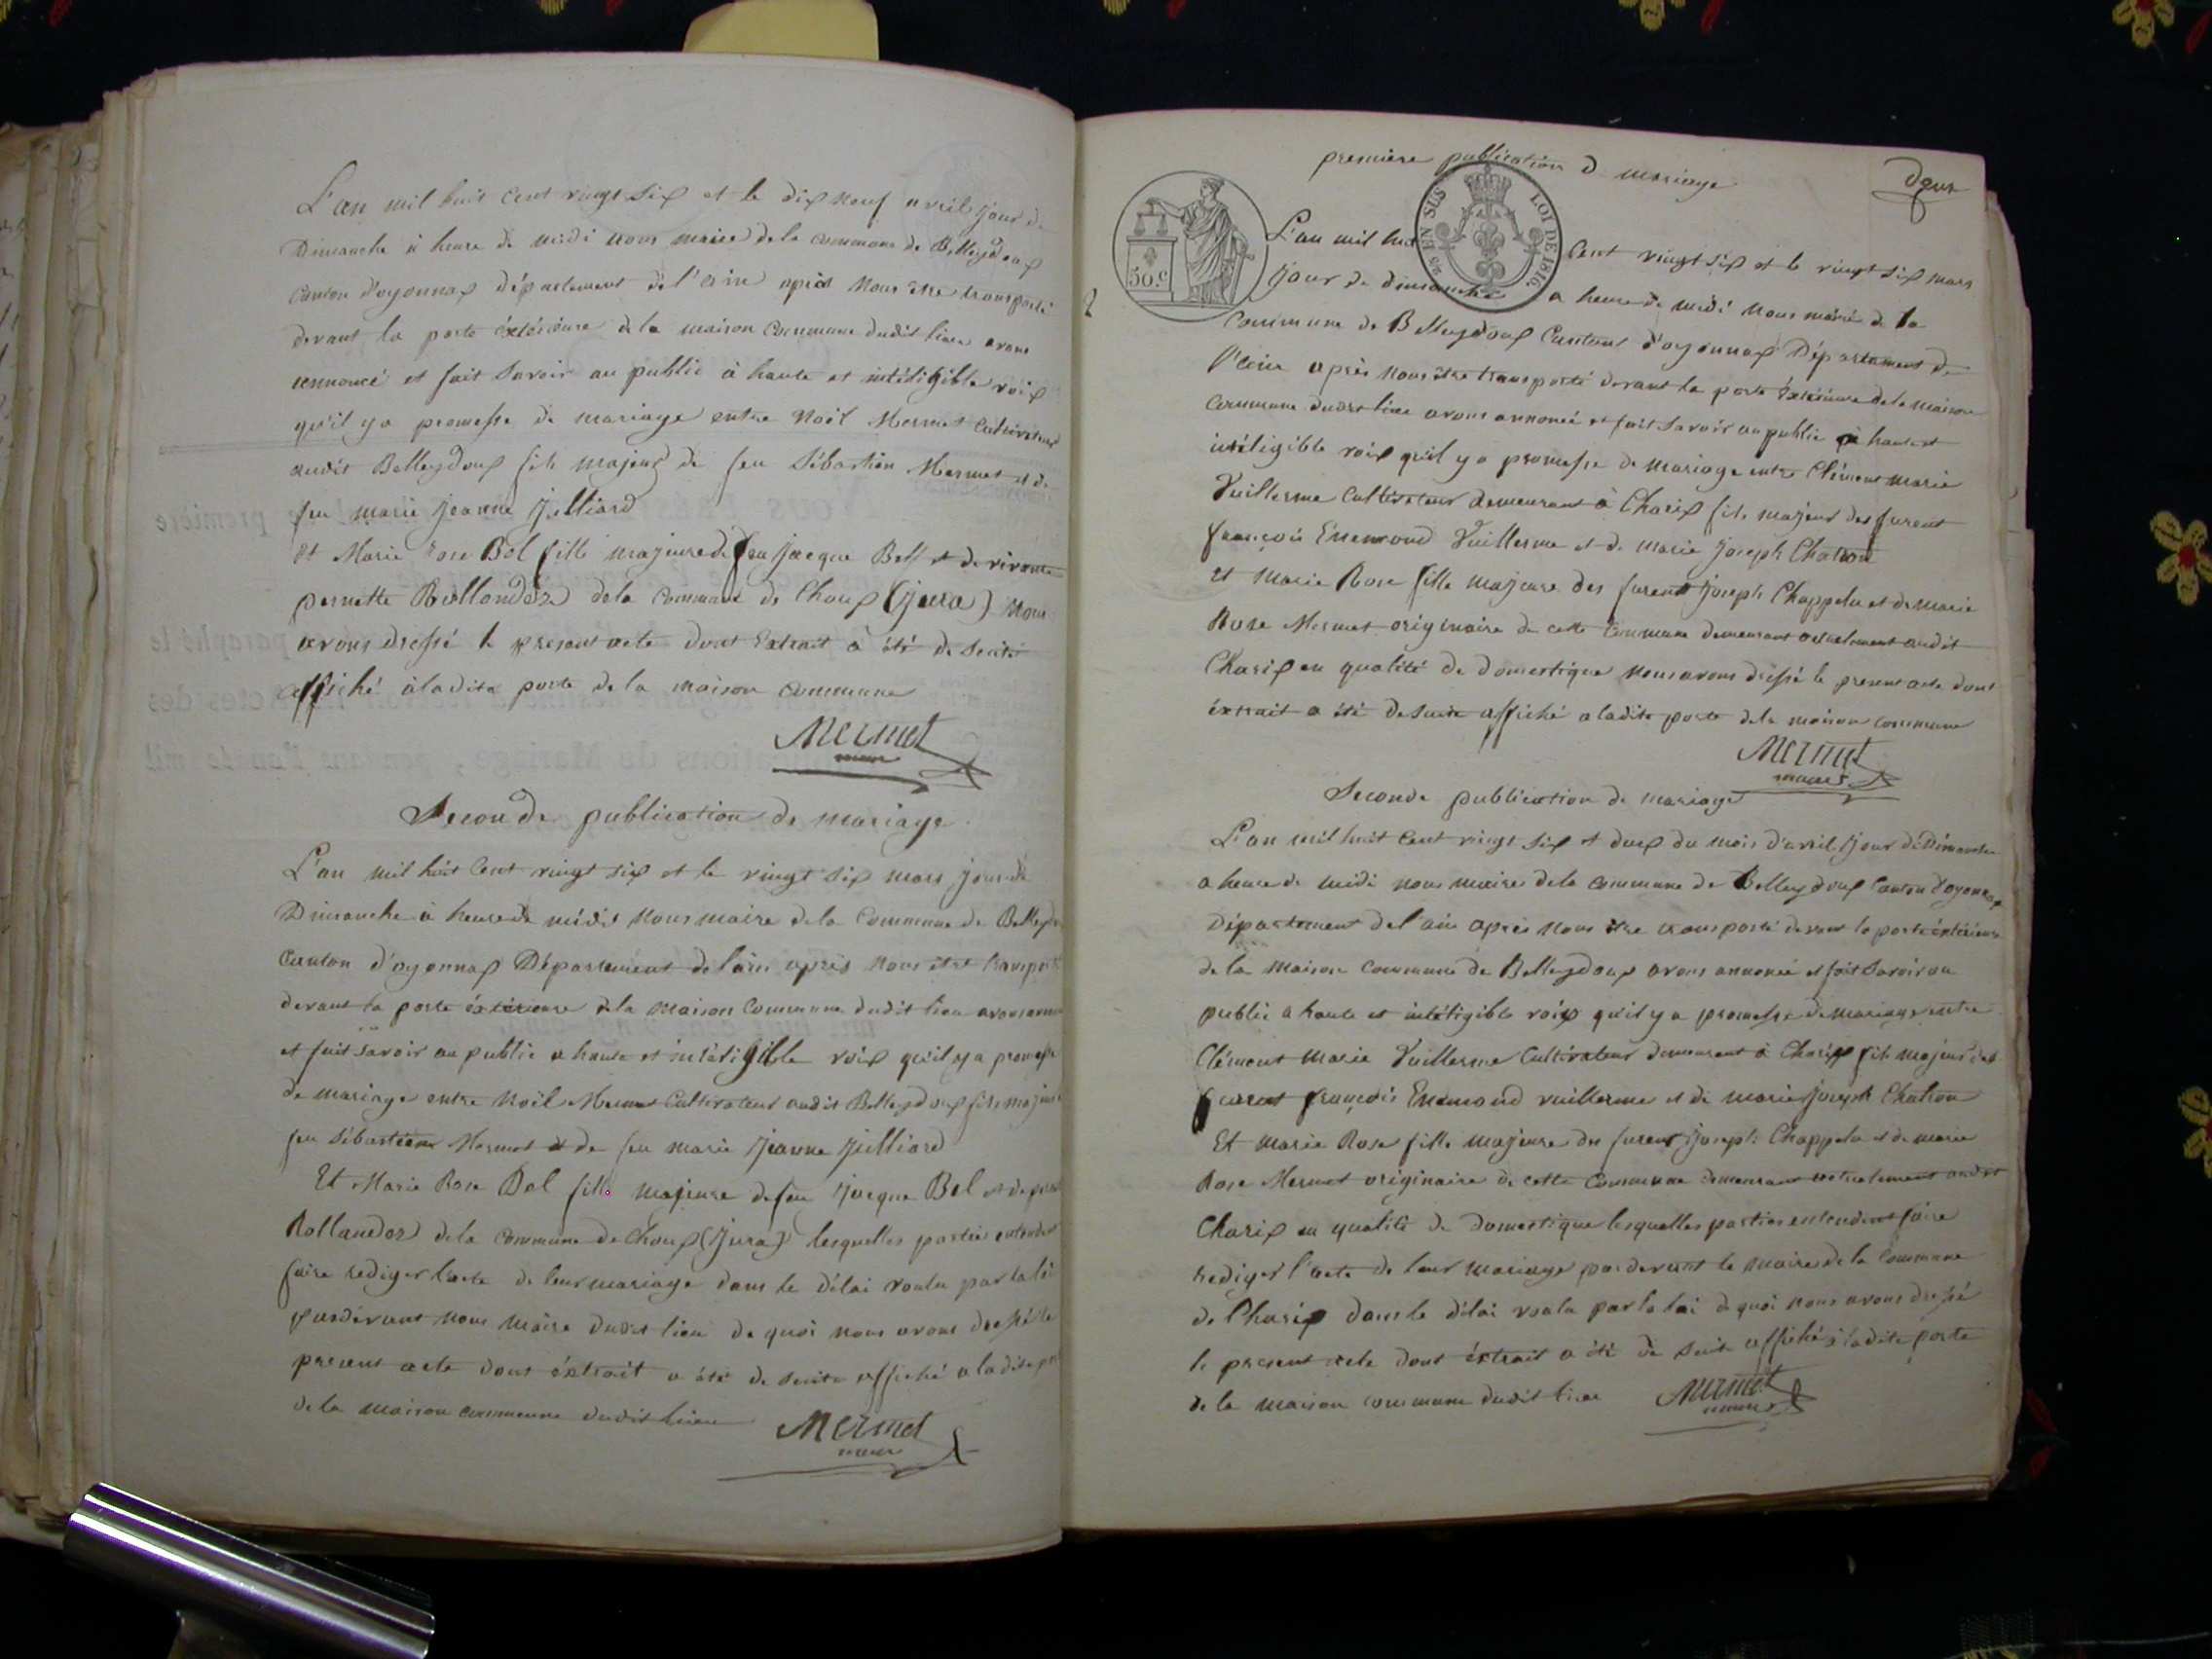 L'an mil huit cent vingt six et le dix neuf avril jour de
Dimanche à heure de midi nous maire de la commune de Belleydoux
canton d'oyonnax département de l'ain après nous être transporté
devant la porte éxtérieure de la maison commune dudit lieu avons
annoncé et fait savoir au public à haute et intéligible voix
qu'il y a promesse de mariage entre Noël Mermet Cultivateur
audit Belleydoux fils majeur de feu Sébastien Mermet et de
feu marie Jeanne Juilliard
Et Marie Rose Bel fille majeure de feu Jacque Bel et de vivante
pernette Rollandez de la commune de Choux (Jura) Nous
avons dressé le present acte dont Extrait à été de suite
affiché à ladite porte de la maison commune
Mermet
maire
Seconde publication de mariage
L'an mil huit Cent vingt six et le vingt six mars jour de
Dimanche à heure de midi Nous maire de la Commune de Belleydo
Canton d'oyonnax Département de l'ain après nous être transporté
devant la porte éxtérieure de la Maison Commune dudit lieu avons
et fait savoir au public a haute et intéligible voix qu'il y a promesse
de mariage entre Noël Mermet Cultivateur audit Belleydoux fils majeur
feu Sébastien Mermet et de feu marie Jeanne Juilliard
Et Marie Rose Bel fille majeure de feu Jacque Bel et de
Rollandez de la Commune de Choux (Jura) lesquelles partie entendent
faire rediger l'acte de leur mariage dans le délai voulu par la loi
pardevant nous maire dudit lieu de quoi nous avons dressé le
present acte dont éxtrait a été de suite affiché a ladite
de la maison commune dudit lieu
Mermet
maire
première publication de mariage
deux
50.c
EN SUS
LOI DE 1816
L'an mil hui Cent vingt six et le vingt six mars
Jour de dimanche a heure de midi Nous maire de la
Commune de Belleydoux Canton d'oyonnax Département de
l'ain après nous être transporté devant la porte éxtérieure de la maison
commune dudit lieu avons annoncé et fait savoir au public à haute et
intéligible voix qu'il y a promesse de mariage entre Clément marie
Vuillerme Cultivateur demeurant à Charix fils majeur des furent
françois Enemond Vuillerme et de marie Joseph Chatron
et marie Rose fille majeure des furent Joseph Chappelu et de marie
Rose Mermet originaire de cette Commune demeurant actuelement audit
Charix en qualité de domestique nous avons dressé le present acte dont
éxtrait a été de suite affiché a ladite porte de la maison commune
Mermet
maire
Seconde publication de mariage
L'an mil huit Cent vingt six et deux du mois d'avril Jour de Dimanche
a heure de midi nous maire de la commune de Belleydoux Canton d'oyonnax
Département de l'ain après Nous être transporté devant la porte éxtérieure
de la maison commune de Belleydoux avons annoncé et fait savoir au
public a haute et intéligible voix qu'il y a promesse de mariage entre
Clément marie Vuillerme Cultivateur demeurant à Charix fils majeur des
furent françois Enemond vuillerme et de marie Joseph Chatron
Et marie Rose fille majeure des furent Joseph Chappelu et de marie
Rose Mermet originaire de cette Commune demeurant actuelement audit
Charix en qualité de domestique lesquelles parties entendent faire
rediger l'acte de leur mariage pardevant le maire de la Commune
de Charix dans le délai voulu par la loi de quoi nous avons dressé
le present acte dont éxtrait a été de suit affiché à ladite porte
de la maison commune dudit lieu
Mermet
maire